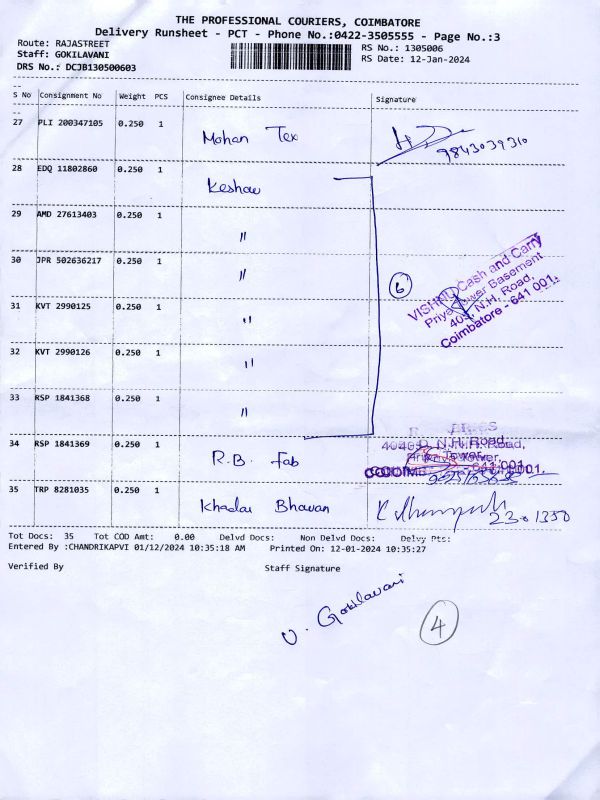 THE PROFESSIONAL COURIERS, COIMBATORE
Delivery Runsheet - PCT - Phone No.:0422-3505555 - Page No.:3
Route: RAJASTREET
Staff: GOKILAVANI
DRS No.: DCJB130500603
RS No.: 1305006
RS Date: 12-Jan-2024
S No Consignment No Weight PCS Consignee Details Signature
27 PLI 200347105 0.250 1 Mohan Tex
9843039310
28 EDQ 11802860 0.250 1 Keshav
29 AMD 27613403 0.250 1 "
30 JPR 502636217 0.250 1 "
6
VISHNU Cash and Carry
Priya Tower Basement
405, N.H. Road,
Coimbatore - 641 001.
31 KVT 2990125 0.250 1 "
32 KVT 2990126 0.250 1 "
33 RSP 1841368 0.250 1 "
34 RSP 1841369 0.250 1 R.B. fab
N.H. Road,
Tower,
641 001.
35 TRP 8281035 0.250 1 Khadar Bhavan
2301350
Tot Docs: 35 Tot COD Amt: 0.00 Delvd Docs: Non Delvd Docs: Delvy Pts:
Entered By :CHANDRIKAPVI 01/12/2024 10:35:18 AM Printed On: 12-01-2024 10:35:27
Verified By Staff Signature
V. Gokilavani
4